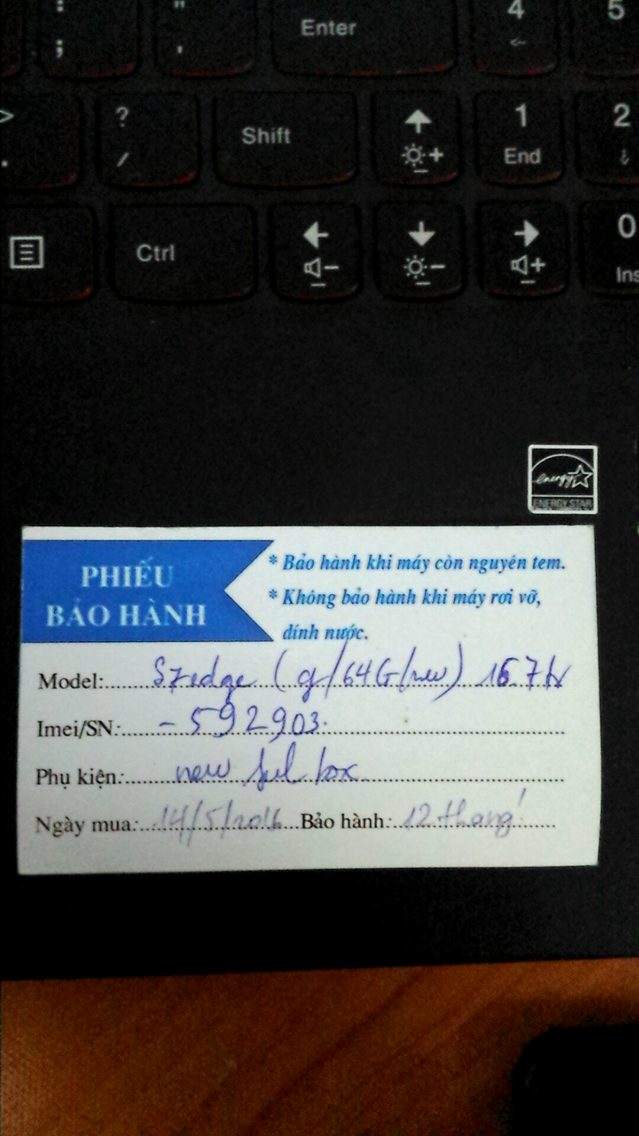 :
;
"
'
Enter
4
5
>
.
?
/
Shift
1
End
2
Ctrl
0
Ins
energy
ENERGY STAR
PHIẾU
BẢO HÀNH
* Bảo hành khi máy còn nguyên tem.
* Không bảo hành khi máy rơi vỡ,
dính nước.
Model: S7 edge ( g/64G/new)
Imei/SN: - 592903.
Phụ kiện: new ful box
Ngày mua: 14/5/2016 Bảo hành: 12 tháng